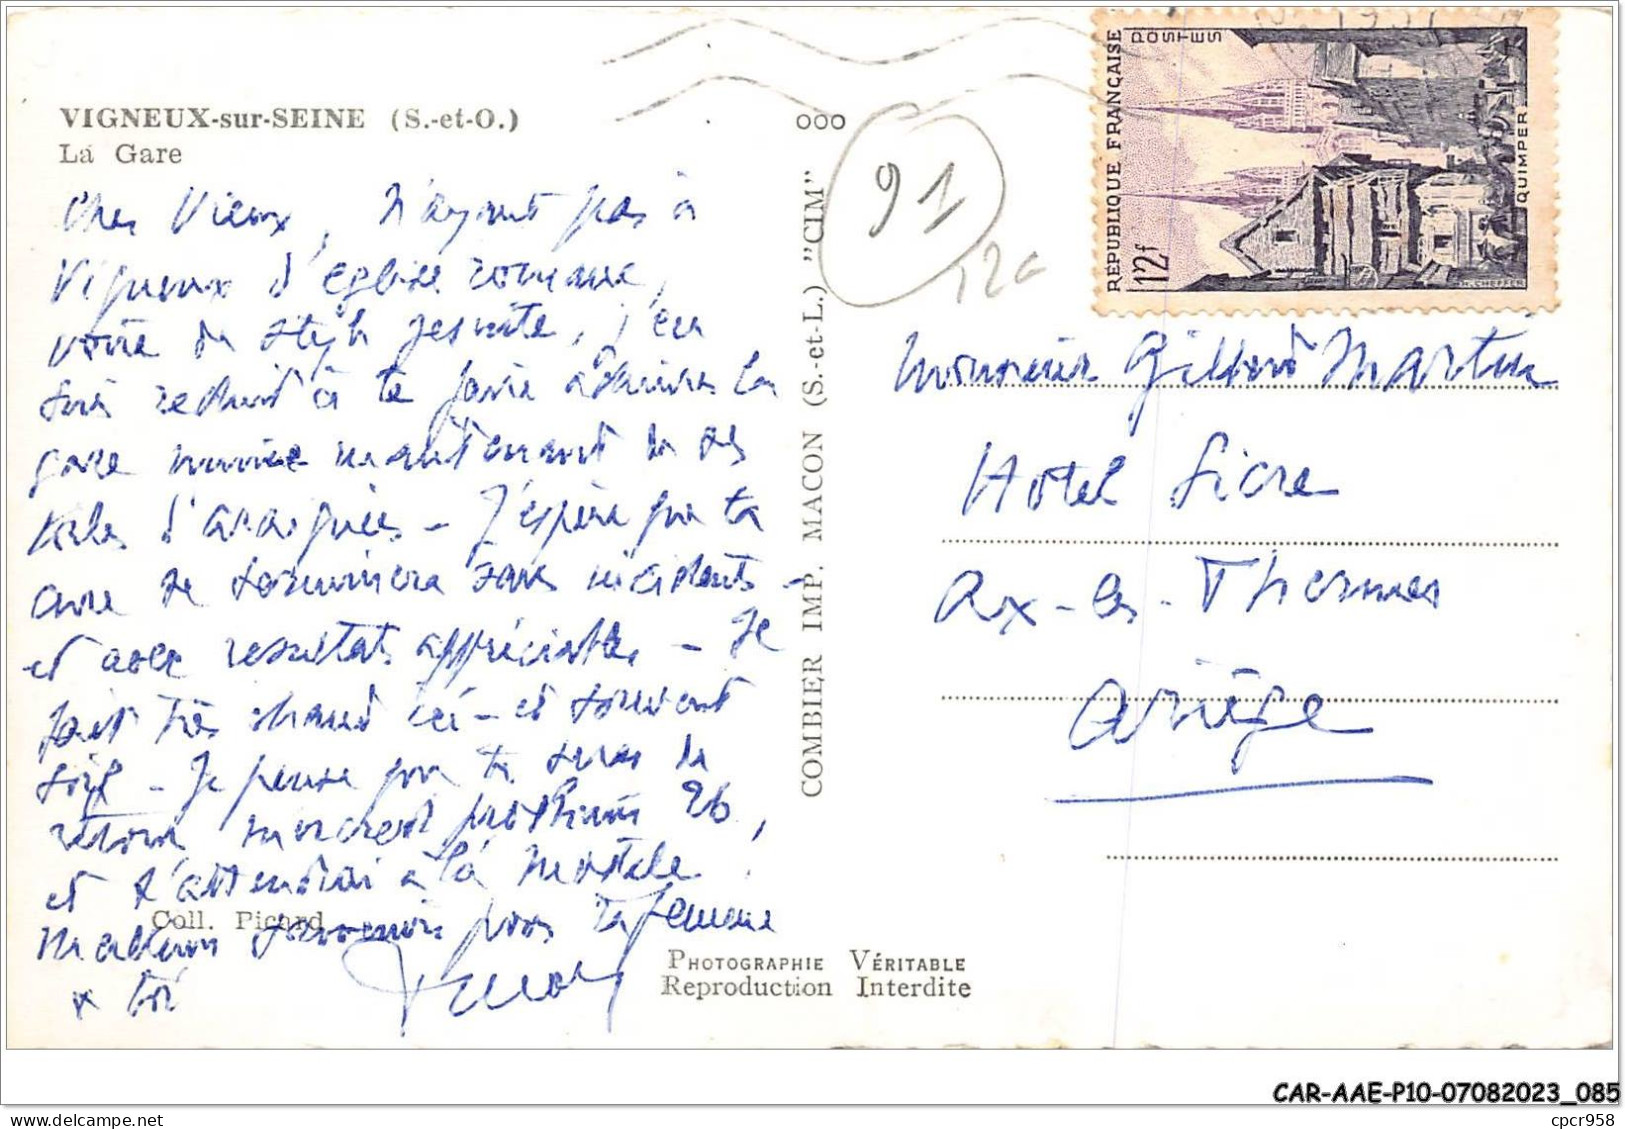 VIGNEUX-sur-SEINE (S.-et-O.)
La Gare
Cher Vieux, N'ayant pas à
Vigneux d'église romane,
voire de style jésuite, j'en
suis réduit à te faire admirer la
gare munie maintenant de ses
toiles d'araignées - J'espère que ta
cure se terminera sans incidents -
et avec résultats appréciables - Il
fait très chaud ici - et souvent
soif - Je pense que tu seras de
retour mercredi prochain 26,
et t'attendrai à la
Coll. Picard
souvenir pour ta femme
& toi
COMBIER IMP. MACON (S.-et-L.) "CIM"
PHOTOGRAPHIE VÉRITABLE
Reproduction Interdite
000
91
12c
RÉPUBLIQUE FRANÇAISE
POSTES
12f
QUIMPER
H. CHEFFER
Monsieur Gilbert Martin
Hotel Sicre
Ax-les-Thermes
Ariège
CAR-AAE-P10-07082023_085
cpcr958